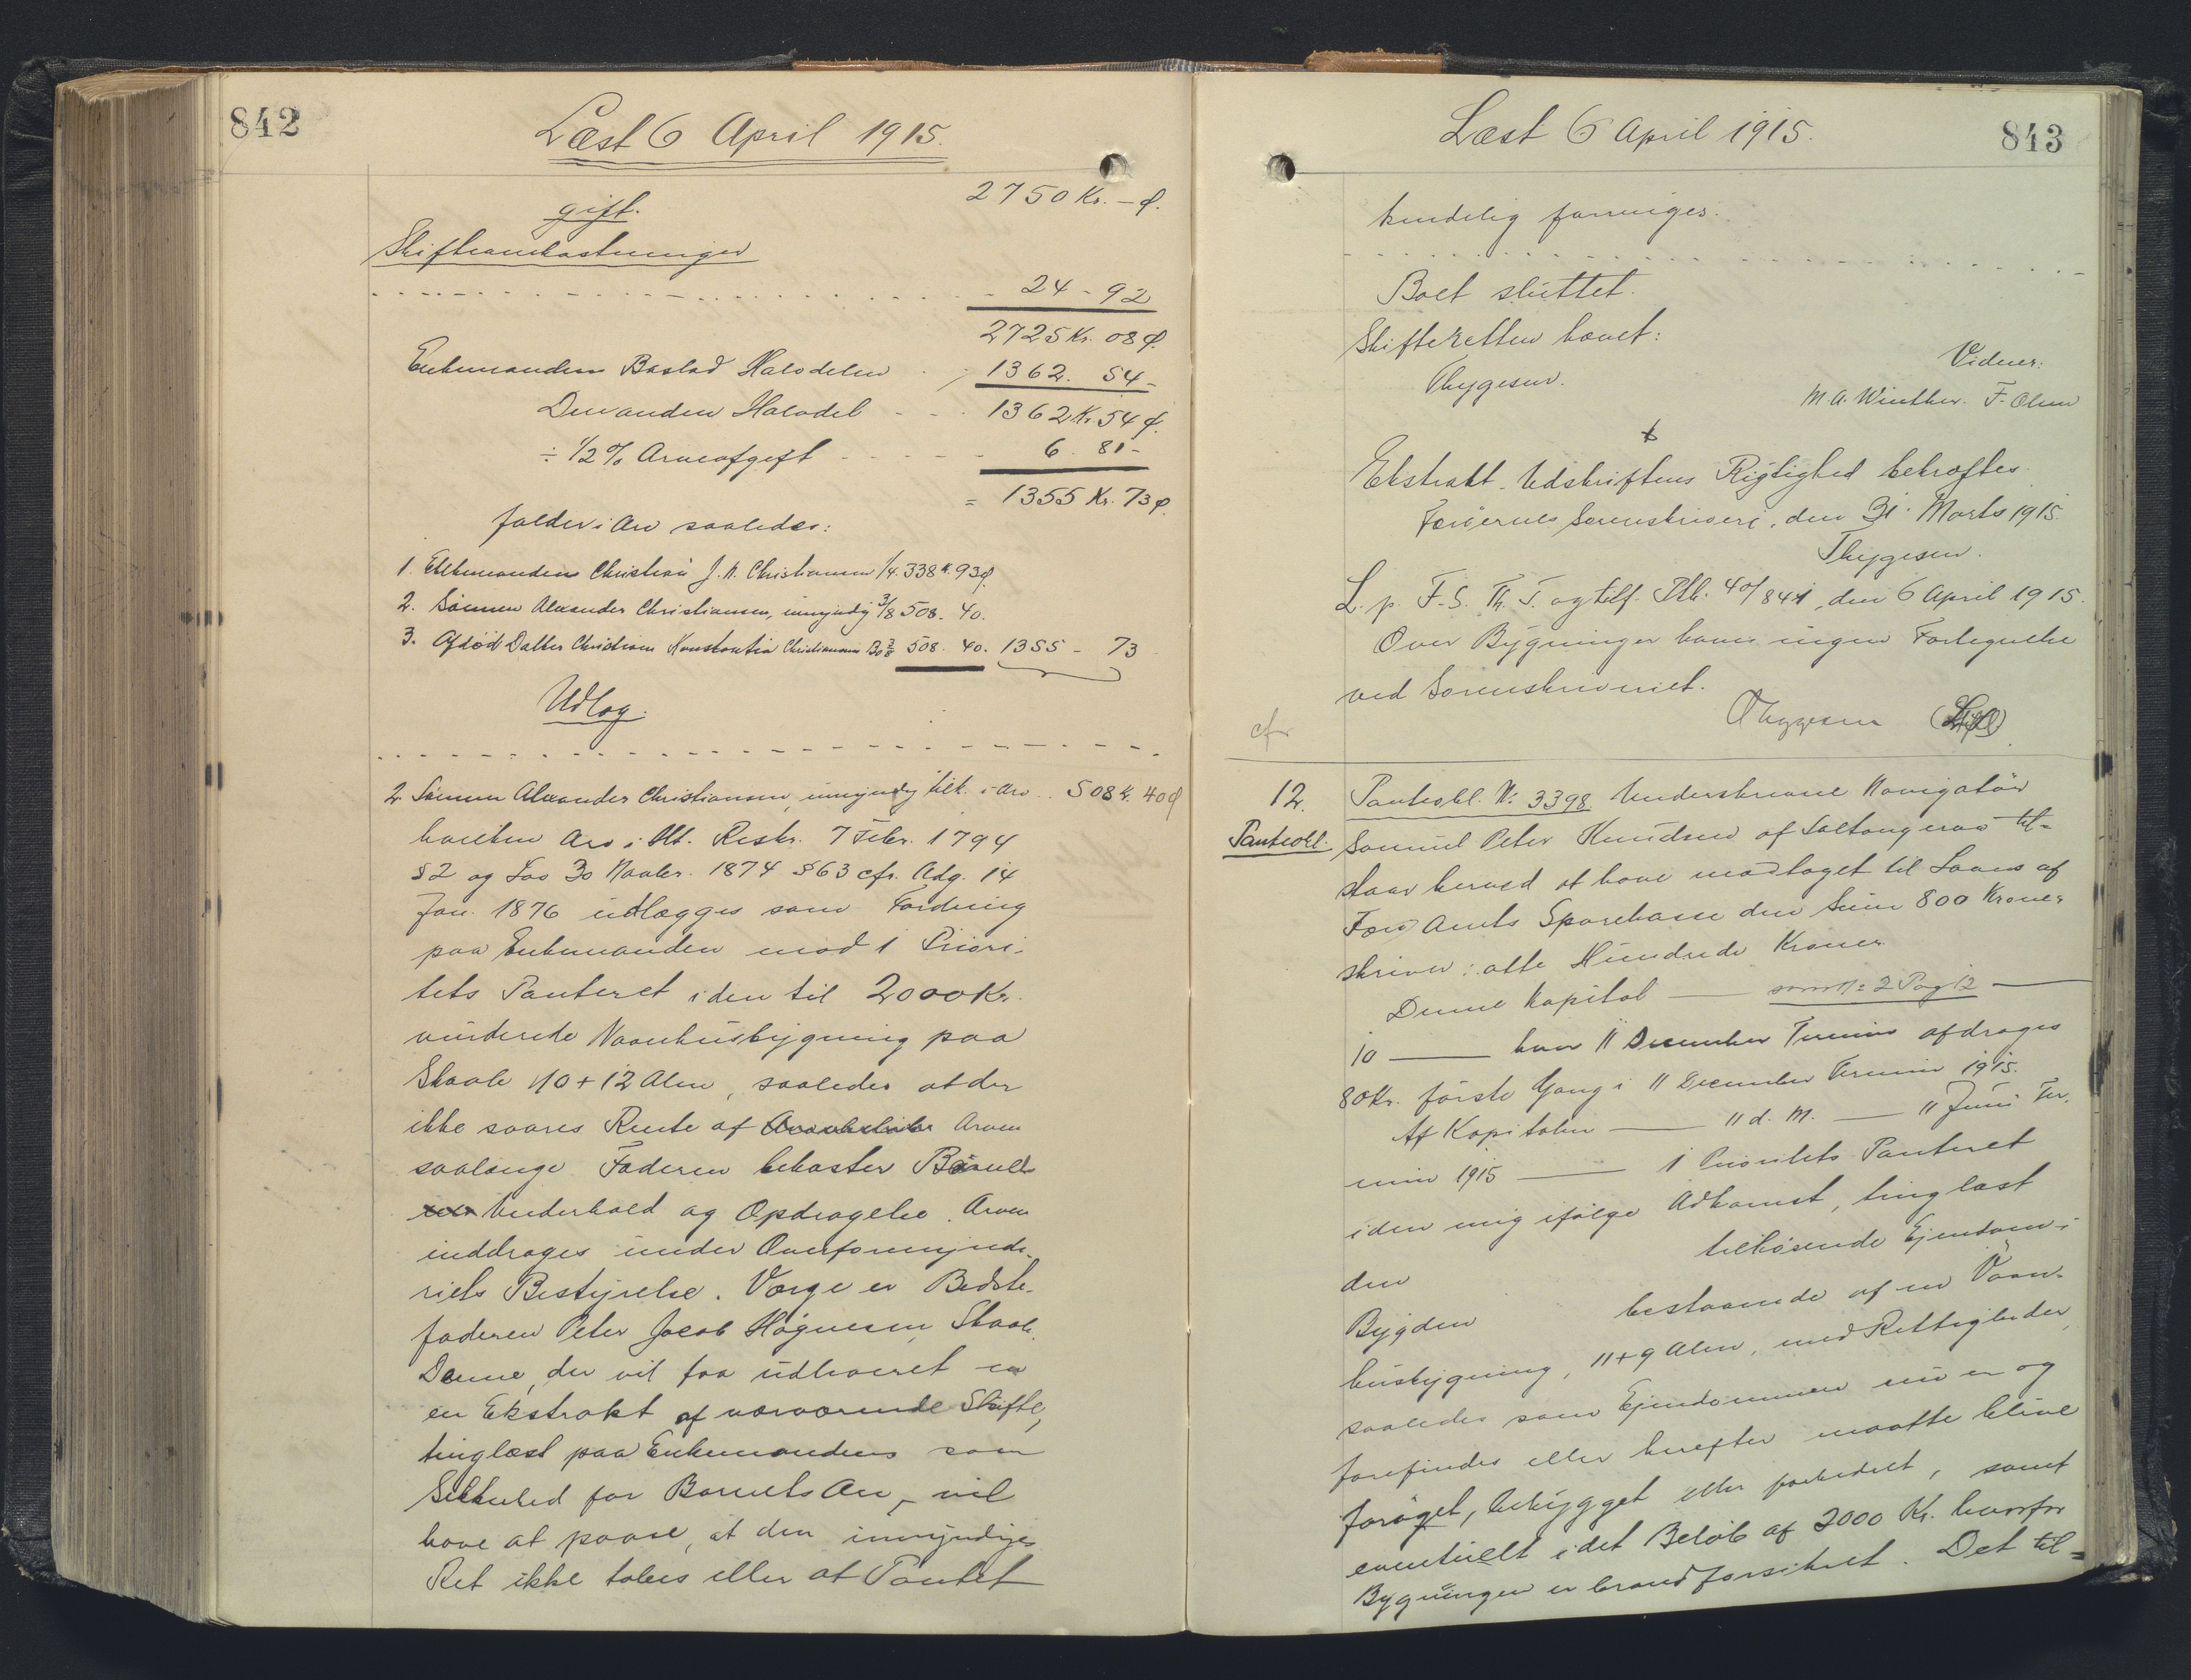 842
Læst 6 April 1915.
2750 Kr. - Ø.
gift.
Skifteomkostninger
24 - 92
2725 Kr. 08 Ø.
Enkemandens Boslod Halvdelen 1362. 54 -
Den anden Halvdel - - - 1362 Kr. 54 Ø.
÷ 1/2 % Arveafgift - - - - - 6. 81 -
= 1355 Kr. 73 Ø.
falder i Arv saaledes:
1. Enkemandens Christian J. N. Christiansen 1/4. 338 K. 93 Ø.
2. Sønnen Alexander Christiansen, umyndig 3/8 508. 40.
3. Afdød Datter Christiane Konstantia Christiansens Bo 3/8 508. 40. 1355 - 73
Udlog.
2. Sønnen Alexander Christiansen, umyndig tilk. i Arv .. 508 K. 40 Ø
hvilken Arv i Hht. Reskr. 7 Febr. 1794
§ 2 og Lov 30 Novbr. 1874 § 63 cfr. Adg. 14
Jan. 1876 udlægges som Fordring
paa Enkemanden mod 1 Priori-
tets Panteret i den til 2000 Kr.
vurderede Vaanhusbygning paa
Skaale 10 + 12 Alen, saaledes at der
ikke svares Rente af Arven
saalænge Faderen bekoster Barnets
Underhold og Opdragelse. Arven
inddrages under Overformynde-
riets Bestyrelse. Værge er Bedste-
faderen Peter Jacob Høgnesen, Skaale.
Denne, der vil faa udleveret en
en Ekstrakt af nærværende Skifte,
tinglæst paa Enkemandens som
Sikkerhed for Barnets Arv, vil
have at paase, at den umyndiges
Ret ikke tabes eller at Pantet
843
Læst 6 April 1915.
kendelig forringes.
Boet sluttet.
Skifteretten hævet:
Thygesen.
Vidner:
M A. Winther. F. Olsen
Ekstrakt-Udskriftens Rigtighed bekræftes
Færøernes Sorenskriveri, den 31. Marts 1915.
Thygesen.
L. p. F. S. Th. T. og tilf. Ptb. 40/841, den 6 April 1915.
Over Bygninger haves ingen Fortegnelse
ved Sorenskriveriet.
Thygesen
cfr
12.
Panteobl.
Panteobl. No. 3398 Underskrevne Navigatør
Samuel Peter Knudsen af Saltangeraa til-
staar herved at have modtaget til Laans af
Færø Amts Sparekasse den Sum 800 Kroner
skriver: otte Hundrede Kroner.
Denne Kapital — som No 2 Pag 12 —
10 — hver 11 December Termin afdrages
80 Kr. første Gang i 11 December Termin 1915.
Af Kapitalen — 11 d. M. — 11 Juni Ter-
min 1915 — 1 Prioritets Panteret
i den mig ifølge Adkomst, tinglæst
den tilhørende Ejendom i
Bygden bestaaende af en Vaan-
husbygning, 11 + 9 Alen, med Rettigheder,
saaledes som Ejendommen nu er og
forefindes eller herefter maatte blive
forøget, bebygget eller forbedret, samt
eventuelt i det Beløb af 2000 Kr. hvorfor
Bygningen er brandforsikret. Det til-